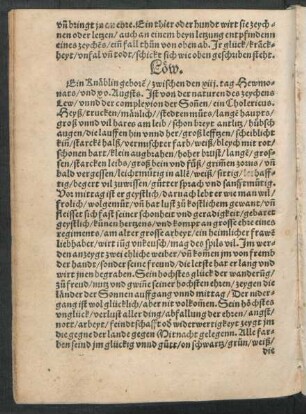 vñ bringt zu an ehre. Ein thier oder hundt wirt sie zeych⸗
nen oder letzen/ auch an einem beyn letzung entpfinden
eines zeychēs/ ein fall thůn von oben ab. Ir glück/ kräck⸗
heyt/ vnfal vñ todt/ schickt sich wie oben geschriben steht.
Löw.
Ein Knäblin geborē/ zwischen den xiij. tag Hewmo⸗
nats/ vnd yo. Augsts. Ist von der naturen des zeychens
Lew/ vnnd der complexion der Soñen/ ein Cholericus.
Heyß/ trucken/ mäulich/ stebren můts/ langs haupts/
groß vnnd vil hares am leib/ schon breyt antlitz/ hübsch
augen/ die lauffen hin vnnd her/ großlefftzen/ scheiblicht
kiñ/ starcke halß/ vermischter farb/ weiß/ bleych mit rot/
schonen bart/ klein augbrahen/ hoher brust/ lange/ gros⸗
sen/ starcken leibs/ groß bein vnd füß/ gehmen zorns/ vñ
bald vergessen/ leichtmütig in allē/ weiß/ sittig/ lebhaff⸗
tig/ begert vil zwissen/ gütter sprach vnd sanfftmütig.
Vor mittag ist er geystlich/ darnach lebt er wie man wil/
frolich/ wolgemůt/ vñ hat lust zů kostlichem gewant/ vñ
fleisset sich fast seiner schonheit vnd geradigkeit/ gebaret
geystlich/ künen hertzens/ vnd kompt an grosse ehre eines
regiments/ am alter grosse arbeyt/ ein heimischer frawē
liebhaber/ wirt iüg vnkeusch/ mag des spils vil. Im wer⸗
den anzeygt zwey ehliche weiber/ vñ komen jm von frembd
der handt/ sonder seine freund/ die letste hat er lang vnd
wirt jnen begraben. Sein hochstes glück der wanderũg/
zů freud/ nutz vnd gwiñ seiner hochsten ehren/ zeygen die
länder der Sonnen auffgang vnnd mittag/ Der nider⸗
gang ist wol glücklich/ aber nit volkomen. Sein hochstes
vnglück/ verlust aller ding/ abfallung der ehren/ angst/
nott/ arbeyt/ feindtschafft od widerwertigkeyt zeygt jm
die gegne der lande gegen Mitnacht gelegenn. Alle far⸗
ben seind jm glückig vnnd gütt/ on schwartz/ grün/ weiß/
die